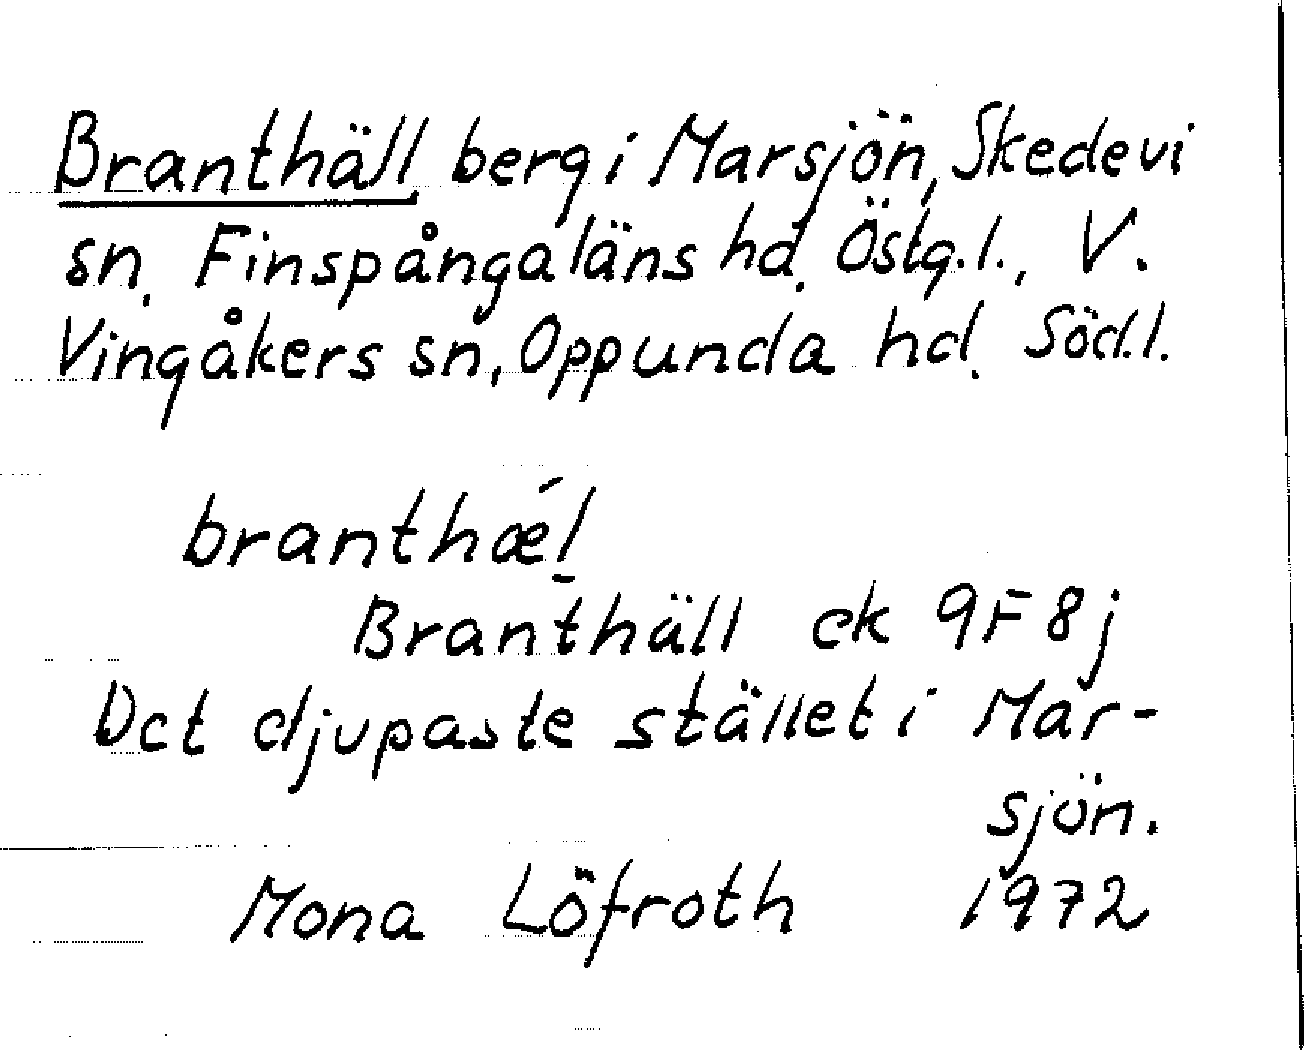 Branthäll, berg i Marsjön, Skedevi
sn, Finspångaläns hd, Östg.l., V.
Vingåkers sn, Oppunda hd, Söd.l.
branthæ´l̠
Branthäll ek 9F8j
Det djupaste stället i Mar-
sjön.
Mona Löfroth 1972